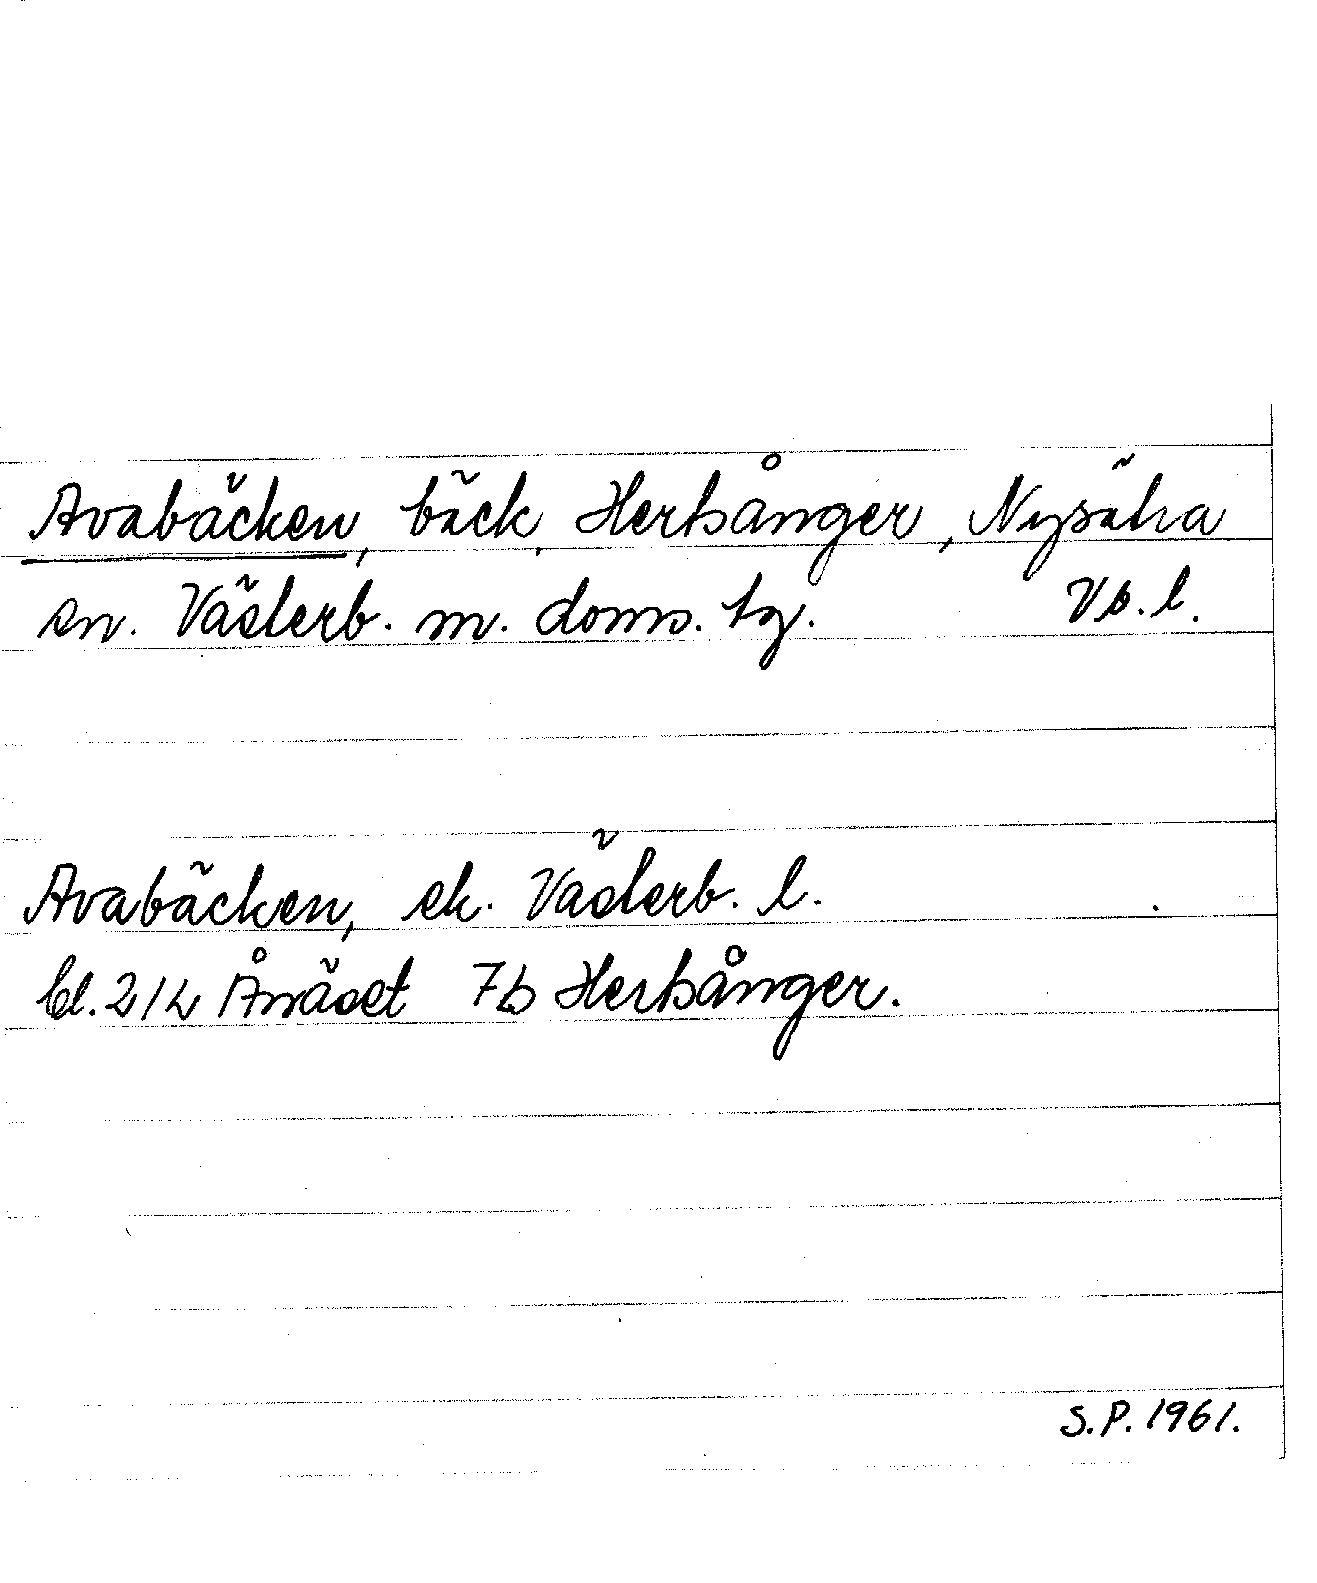 Avabäcken, bäck, Herbånger, Nysätra
sn. Västerb. m. doms. tg. Vb. l.
Avabäcken, ek. Västerb. l.
bl. 214 Ånäset 7b Herbånger.
S.P. 1961.